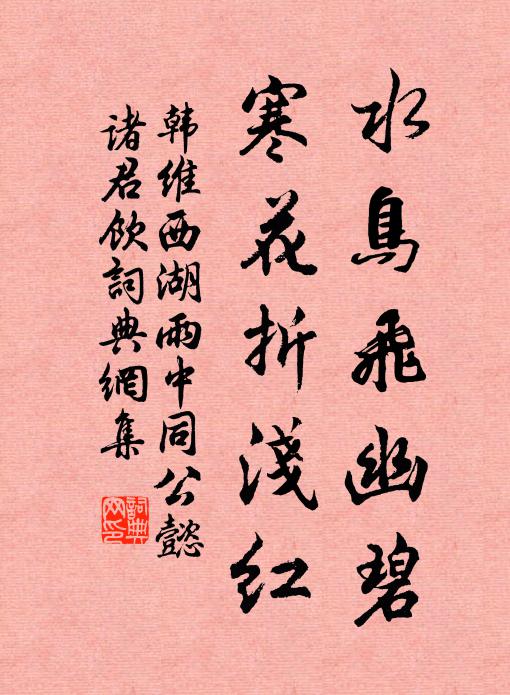 水鳥飛幽碧
寒花折淺红
韩维西湖雨中同公懿
诸君飲詞典網集
詞典
网印